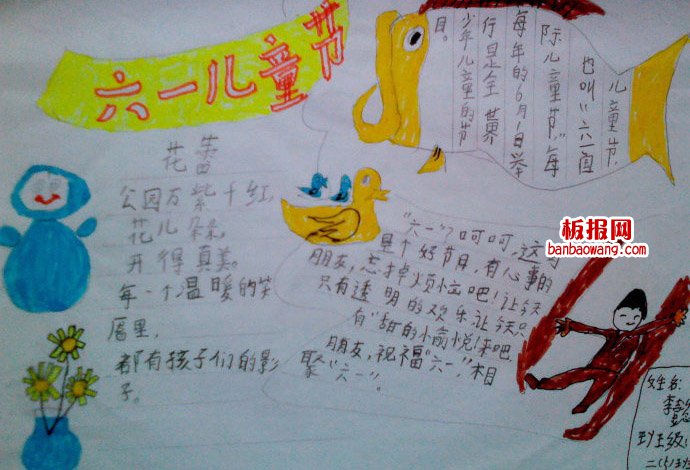 六一儿童节
花蕾
公园万紫千红,
花儿朵朵,
开得真美。
每一个温暖的笑
靥里,
都有孩子们的影
子。
儿童节,
也叫“六一国
际儿童节”,每
每年的6月1日举
行是全世界
少年儿童的节
目。
“六一”,呵呵,这
是个好节目,有心事的
朋友,忘掉烦恼吧!让今天
只有透明的欢乐让今天只
有“甜的愉悦!来吧
朋友,祝福“六一”,相
聚“六一”。
板报网
banbaowang.com
姓名:
李
班级:
二(5)班